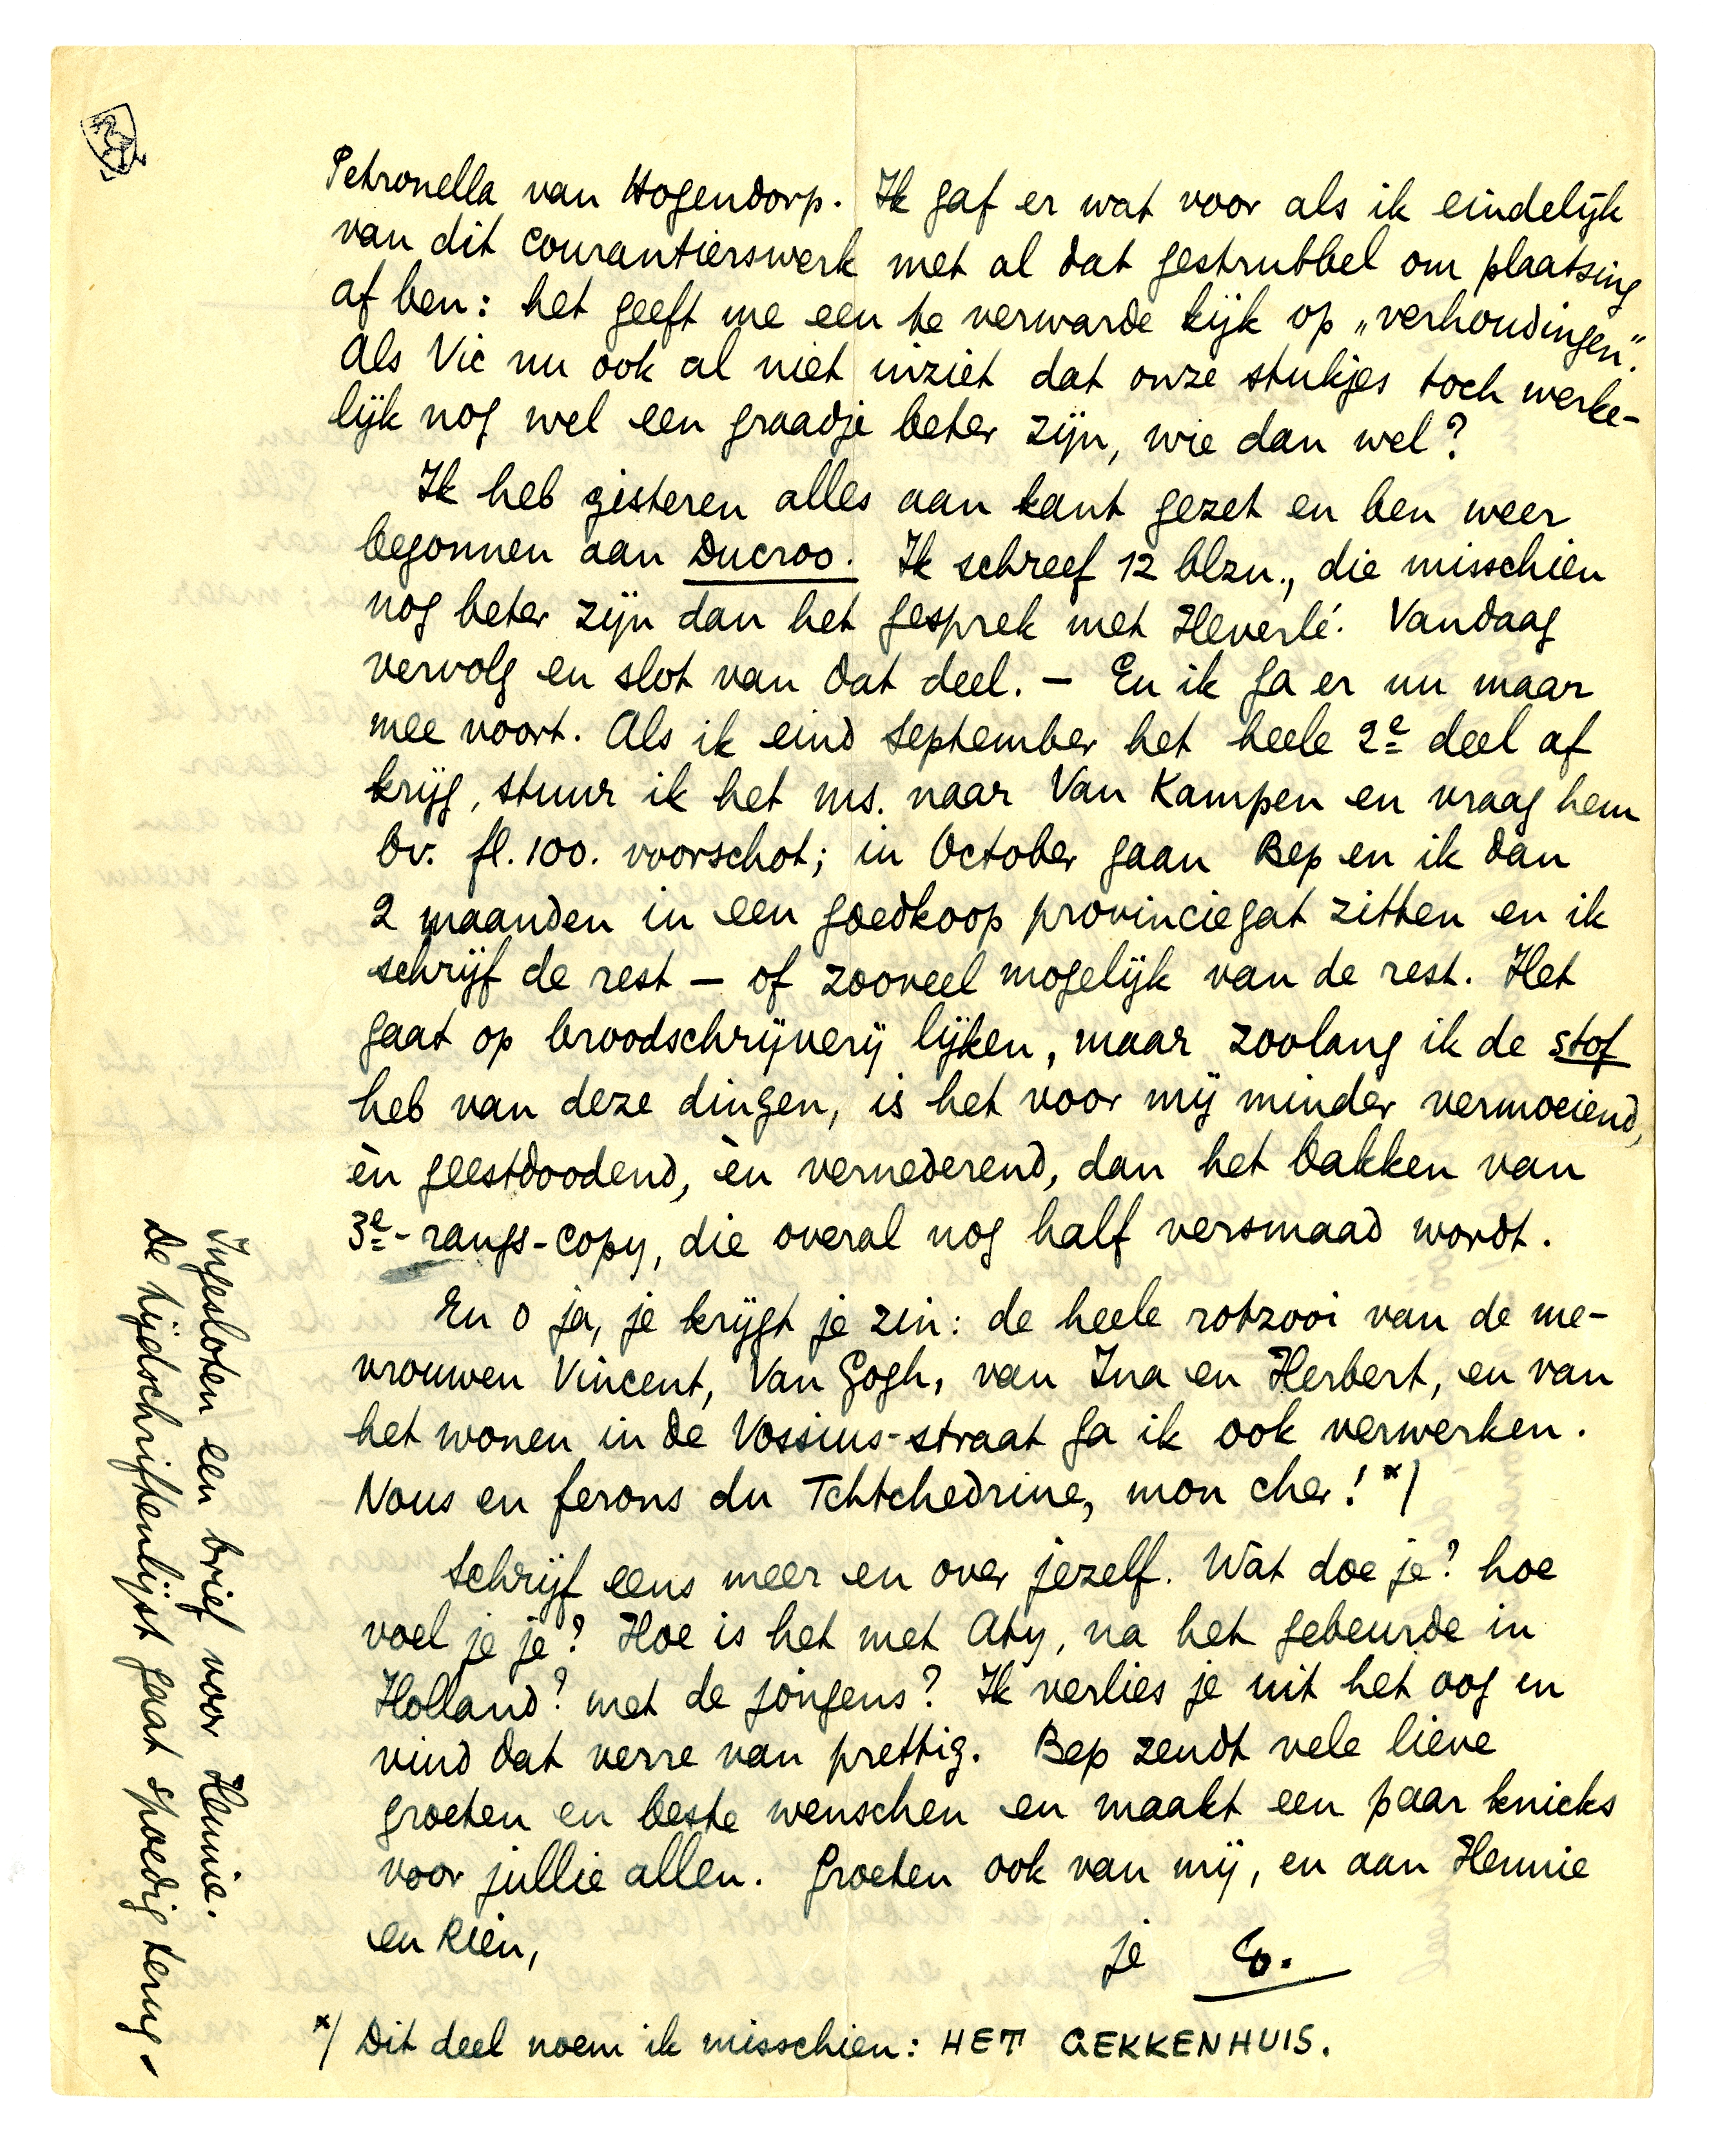 Petronella van Hogendorp. Ik gaf er wat voor als ik eindelijk
van dit courantierswerk met al dat gestrubbel om plaatsing
af ben: het geeft me een te verwarde kijk op „verhoudingen".
Als Vic nu ook al niet inziet dat onze stukjes toch werke-
lijk nog wel een graadje beter zijn, wie dan wel?
Ik heb gisteren alles aan kant gezet en ben weer
begonnen aan Ducroo. Ik schreef 12 blzn., die misschien
nog beter zijn dan het gesprek met Heverlé. Vandaag
vervolg en slot van dat deel. — En ik ga er nu maar
mee voort. Als ik eind September het heele 2e deel af
krijg, stuur ik het ms. naar Van Kampen en vraag hem
bv. fl. 100. voorschot; in October gaan Bep en ik dan
2 maanden in een goedkoop provinciegat zitten en ik
schrijf de rest — of zooveel mogelijk van de rest. Het
gaat op broodschrijverij lijken, maar zoolang ik de stof
heb van deze dingen, is het voor mij minder vermoeiend,
èn geestdoodend, èn vernederend, dan het bakken van
3e-rangs-copy, die overal nog half versmaad wordt.
En o ja, je krijgt je zin: de heele rotzooi van de me-
vrouwen Vincent, Van Gogh, van Ina en Herbert, en van
het wonen in de Vossius-straat ga ik ook verwerken.
Nous en ferons du Tchtchedrine, mon cher! *)
Schrijf eens meer en over jezelf. Wat doe je? hoe
voel je je? Hoe is het met Aty, na het gebeurde in
Holland? met de jongens? Ik verlies je uit het oog en
vind dat verre van prettig. Bep zendt vele lieve
groeten en beste wenschen en maakt een paar knicks
voor jullie allen. Groeten ook van mij, en aan Hennie
en Rien,
je E.
*) Dit deel noem ik misschien: HET GEKKENHUIS.
Ingesloten een brief voor Hennie.
De tijdschriftenlijst gaat spoedig terug.